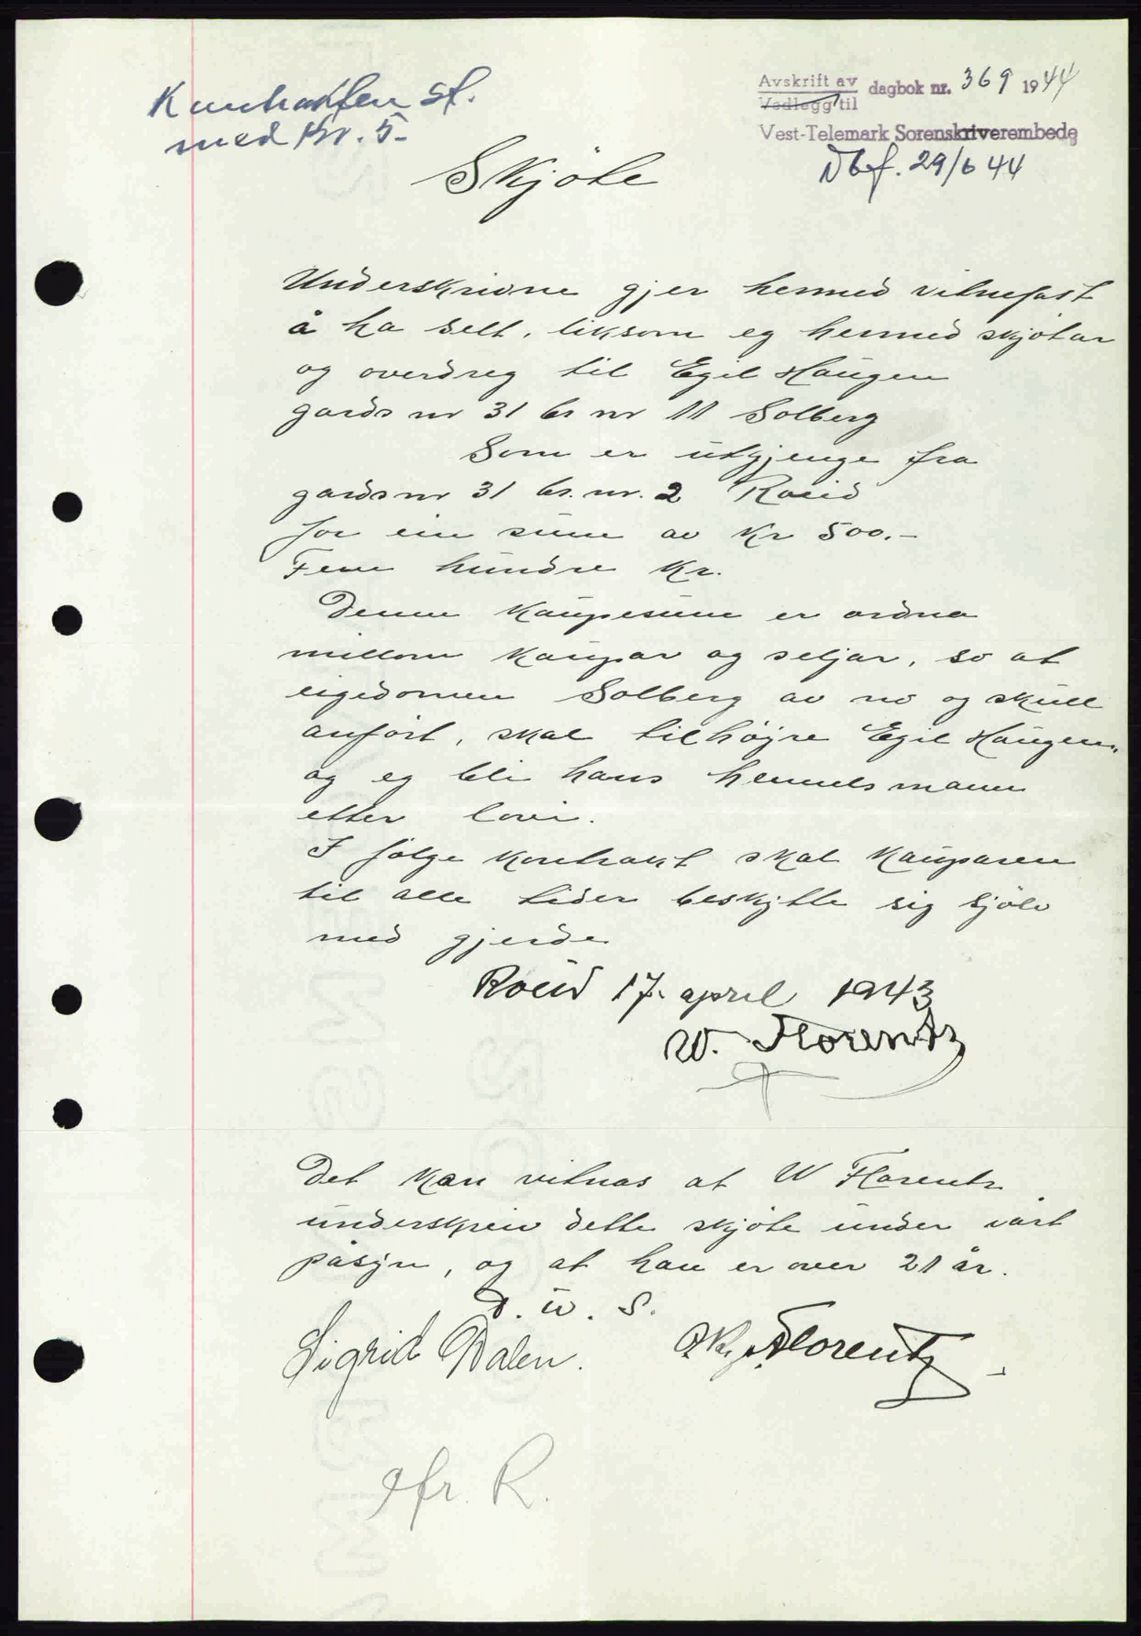 Kunhatten st.
med Kr. 5-
Avskrift av
Vedlegg til
dagbok nr. 369 1944
Vest-Telemark Sorenskriverembede
Dbf. 29/6 44
Skjöte
Underskrivne gjer hermed vitnefast
å ha selt, liksom eg hermed skjötar
og overdreg til Egil Haugen
gards nr 31 br nr 11 Solberg
Som er utgjenge fra
gardsnr 31 br. nr. 2 Roeid
for ein sum av Kr 500.-
Fem hundre Kr.
Denne Kaupesum er ordna
millom Kaupar og seljar, so at
eigedomen Solberg av no og skull
anfört, skal tilhøyre Egil Haugen,
og eg bli hans hemmelsmann
etter lovi.
I fölge Kontrakt skal Kauparen
til alle tider beskytte sig sjölv
med gjerde
Roeid 17. april 1943
W. Florentz
Det Kan vitnas at W Florentz
underskreiv dette skjöte under vårt
påsyn, og at han er over 21 år.
D. u. S.
Sigrid Dalen. Florentz
Jfr. R.